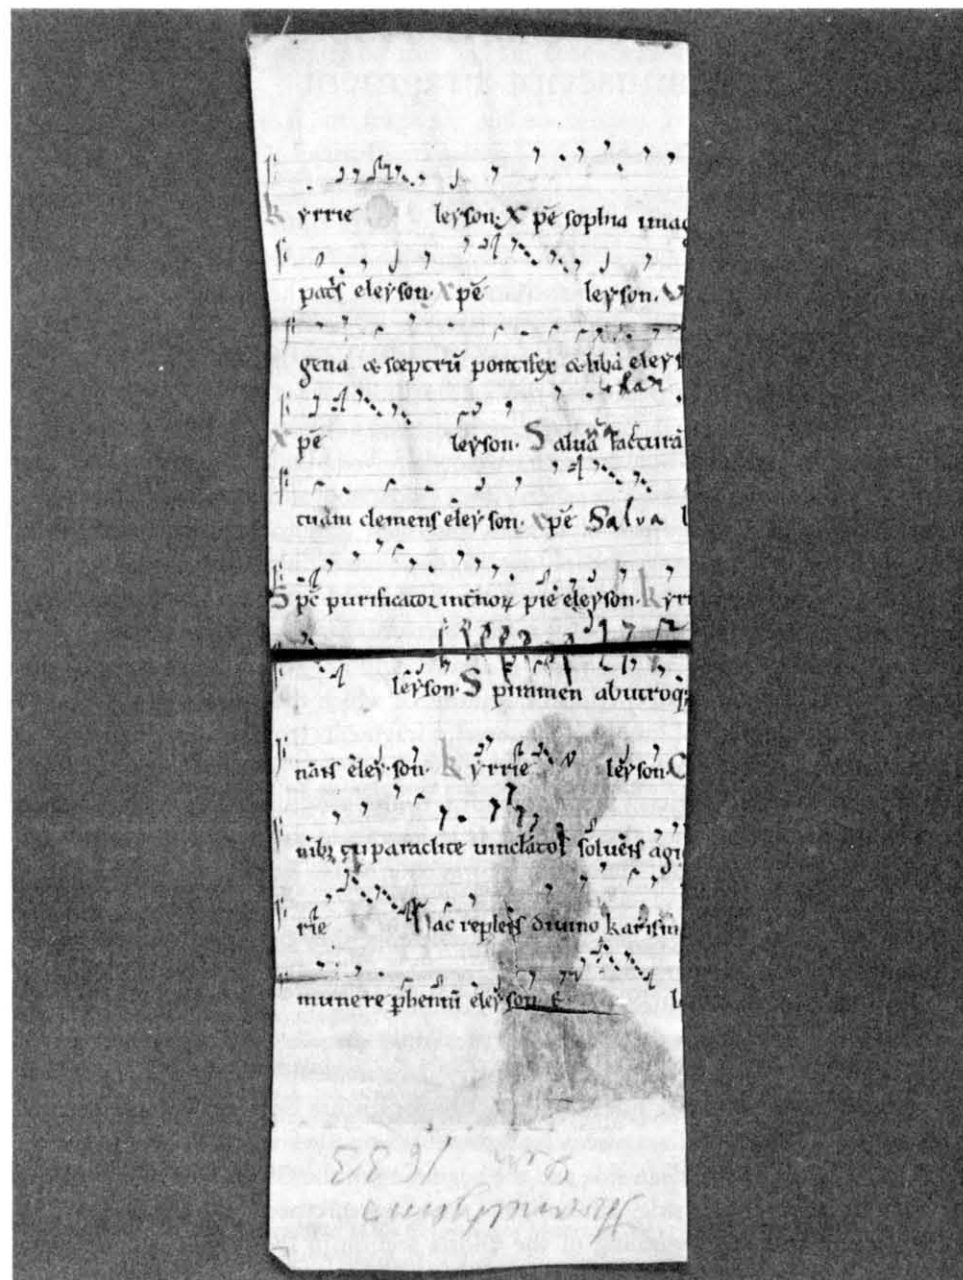 kyrrie leyson. Xpē sophia imag
pat̄s eleyson. xpē leyson. U
geua & sceptrū pontifex & liba eley
kar
xpē leyson. Saluā facturā
tuām clemens eleyson. xpē Salva l
Spē purificator int̄nor pie eleyson. kyrr
leyson. Spiramen abutroq;
nāts eley son. kyrrie leyson. C
nibꝫ tu paraclite uinclatos solueis agi
rrie hac repleis diuino karism
munere phennū eleyson. E le
1633